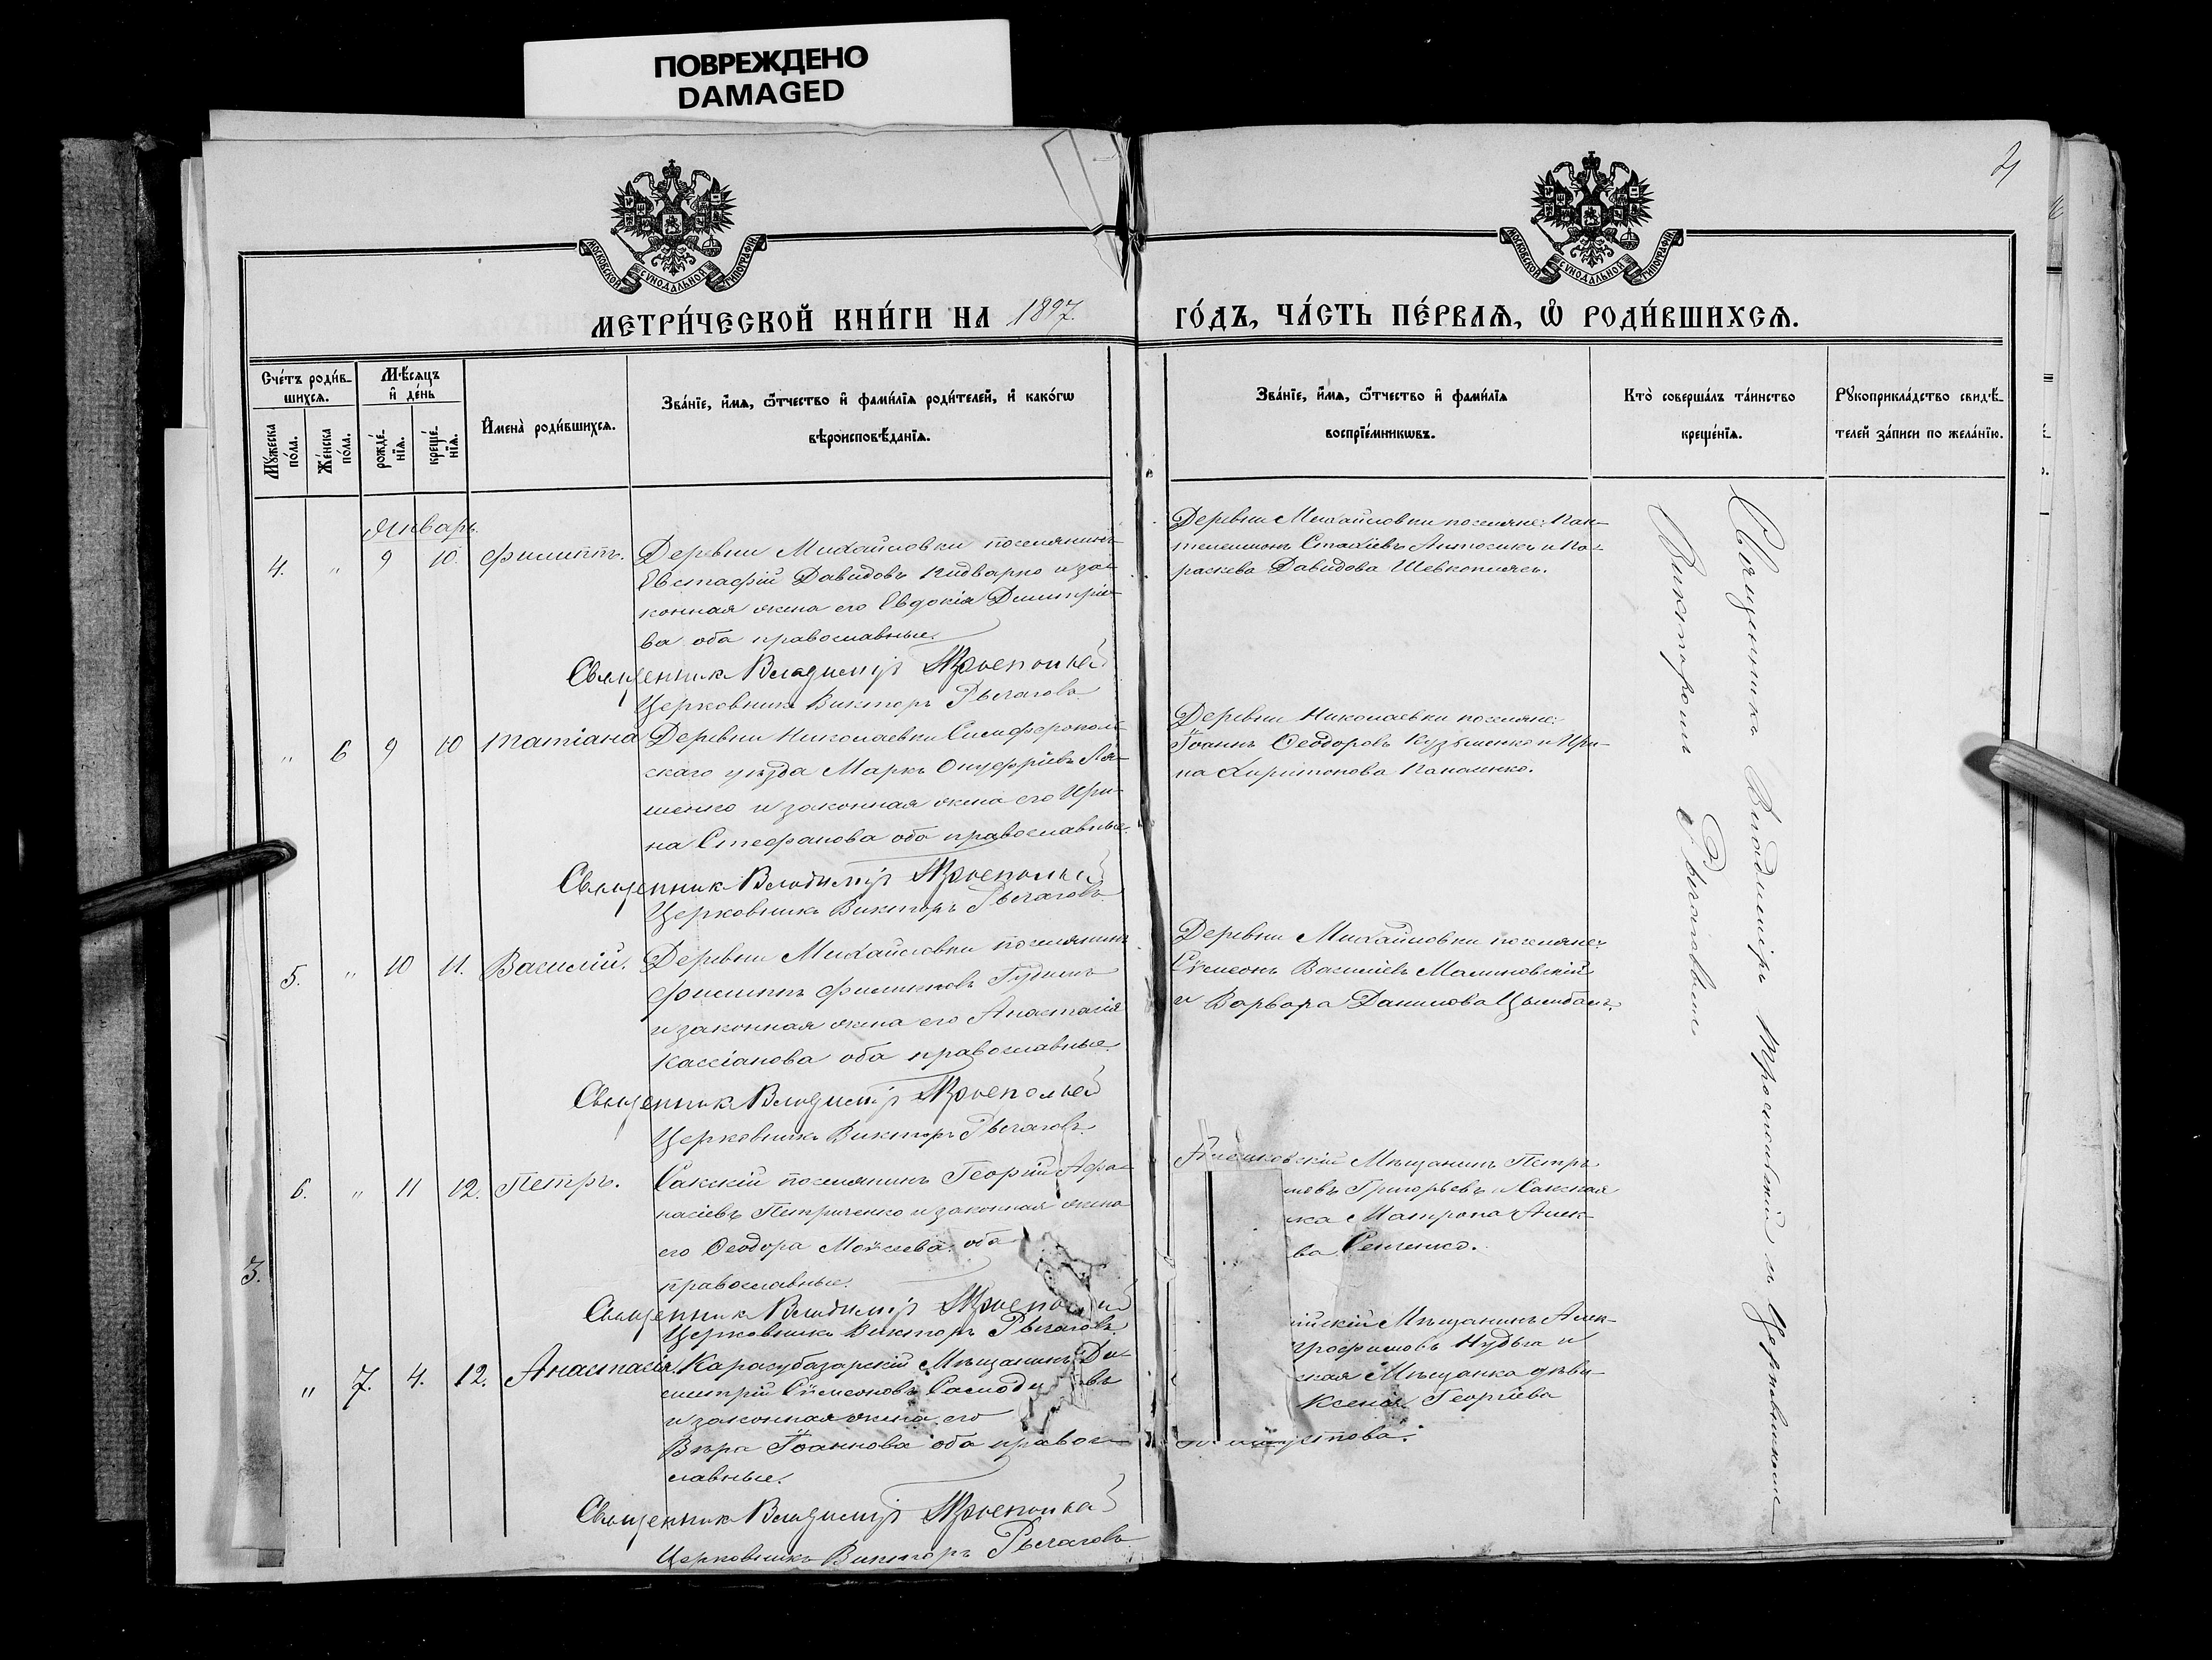 ПОВРЕЖДЕНО
DAMAGED
2
МОСКОВСКОЙ СѴНОДАЛЬНОЙ ТИПОГРАФІИ
МОСКОВСКОЙ СѴНОДАЛЬНОЙ ТИПОГРАФІИ
МЕТРИ́ЧЕСКОЙ КНИ́ГИ НА 1897.
ГО́ДЪ, ЧА́СТЬ ПЕ́РВАѦ, Ѽ РОДИ́ВШИХСѦ.
Сче́тъ роди́в-
шихсѧ.
Мꙋ́жеска по́ла.
Же́нска по́ла.
Мѣ́сѧцъ и҆ де́нь
рожде́-нїѧ.
креще́-нїѧ.
И҆мена̀ роди́вшихсѧ.
Зва́нїе, и҆́мѧ, ѻ҆́тчество и҆ фами́лїѧ роди́телей, и҆ како́гѡ
вѣроисповѣ́данїѧ.
Зва́нїе, и҆́мѧ, ѻ҆́тчество и҆ фами́лїѧ
воспрїе́мникѡвъ.
Кто̀ соверша́лъ та́инство
креще́нїѧ.
Рꙋкоприкла́дство свидѣ́-
телей за́писи по жела́нїю.
Январь.
4. " 9 10. Филиппъ. Деревни Михайловки поселянинъ
Евстафій Давидовъ Кидварко и за-
конная жена его Евдокія Димитріе-
ва оба православные.
Священникъ Владиміръ
Церковникъ Викторъ Рычаговъ
Деревни Михайловки поселяне: Пан-
телеимонъ Стахіевъ Антосикъ и Па-
раскева Давидова Шевкопляс.
" 6 9 10 Татіана Деревни Николаевки Симферополь-
скаго уѣзда Маркъ Онуфріевъ Ля-
шенко и законная жена его Ири-
на Стефанова оба православные.
Священникъ Владиміръ
Церковникъ Викторъ Рычаговъ
Деревни Николаевки поселяне:
Іоаннъ Ѳеодоровъ Кузьменко и Ири-
на Харитонова Панасенко.
5. " 10 11. Василій. Деревни Михайловки поселянинъ
Филиппъ Филипповъ Гудимъ
и законная жена его Анастасія
Кассіанова оба православные.
Священникъ Владиміръ
Церковникъ Викторъ Рычаговъ
Деревни Михайловки поселяне:
Сѵмеонъ Василіевъ Малиновскій
и Варвара Данилова Цымбалъ.
6. " 11 12. Петръ. Сакскій поселянинъ Георгій Афа-
насіевъ Петриченко и законная жена
его Ѳеодора Моѵсеева оба
православные.
Священникъ Владиміръ
Церковникъ Викторъ Рычаговъ
Мѣщанинъ Петръ
Григорьевъ и Сакская
ка Матрона Алек-
ва Сенченко.
3.
" 7. 4. 12. Анастасія. Карасубазарскій Мѣщанинъ Ди-
митрій Сѵмеоновъ
и законная жена его
Вѣра Іоаннова оба правос-
лавные.
Священникъ Владиміръ
Церковникъ Викторъ Рычаговъ
йскій Мѣщанинъ Алек-
трофимовъ Нудьга и
ская Мѣщанка дѣви-
Ксенія Георгіева
Священникъ Владиміръ Троепольскій съ Церковникомъ
Викторомъ Рычаговымъ